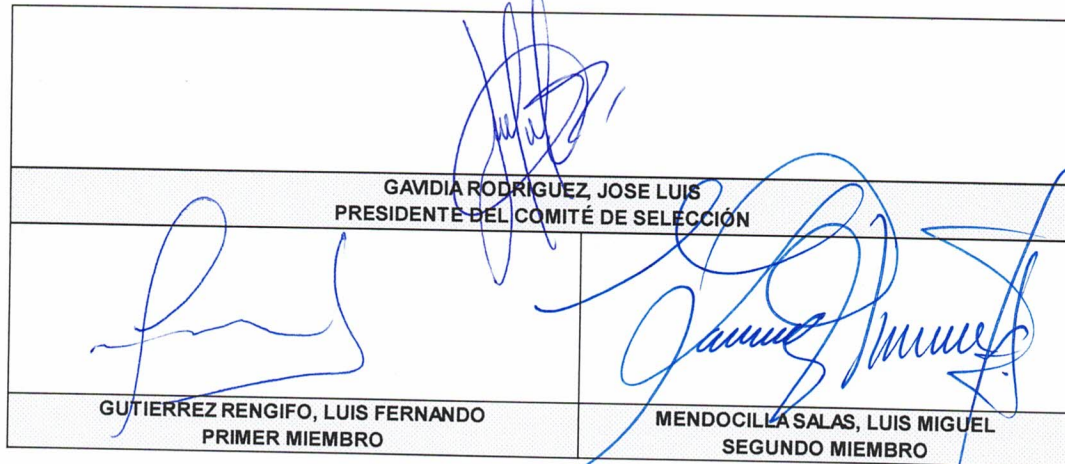 GAVIDIA RODRIGUEZ, JOSE LUIS
PRESIDENTE DEL COMITÉ DE SELECCIÓN
GUTIERREZ RENGIFO, LUIS FERNANDO
PRIMER MIEMBRO
MENDOCILLA SALAS, LUIS MIGUEL
SEGUNDO MIEMBRO